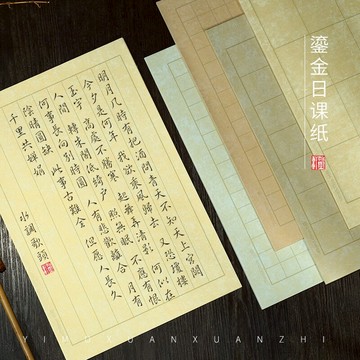 鎏金日课纸
明月几時有把酒問青天不知天上宮闕
今夕是何年我欲乘風歸去又恐瓊樓
玉宇高處不勝寒起舞弄清影何似在
人間轉朱閣低綺戶照無眠不應有恨
何事長向別時圓人有悲歡離合月有
陰晴圓缺此事古難全但願人長久
千里共嬋娟
水調歌頭
YIMOXUANXUANZHI